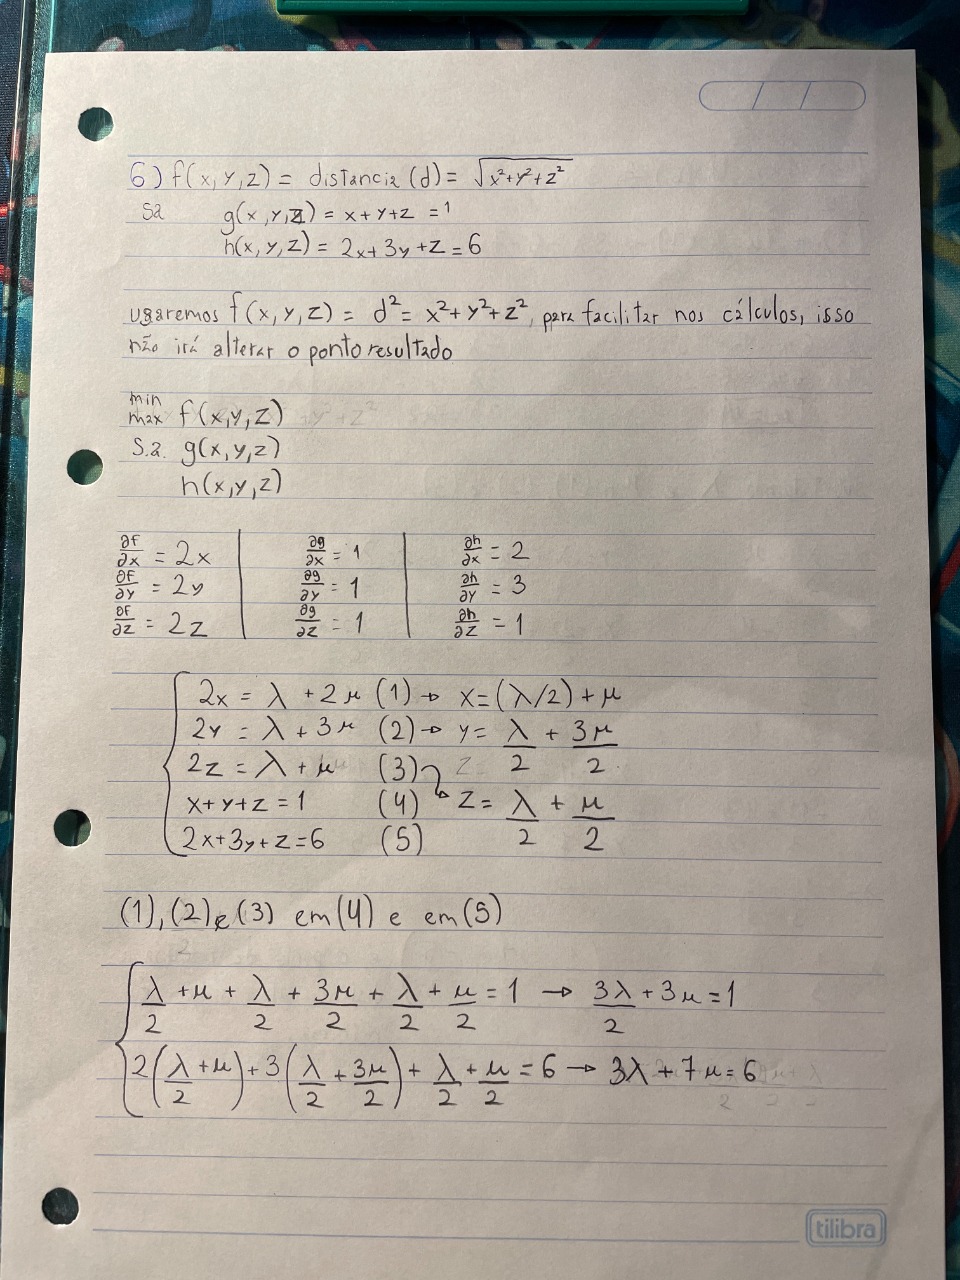 6) f(x,y,z) = distancia (d) = √(x²+y²+z²)
sa g(x,y,z) = x+y+z = 1
h(x,y,z) = 2x+3y+z = 6
usaremos f(x,y,z) = d² = x²+y²+z², para facilitar nos cálculos, isso
não irá alterar o ponto resultado
min
max f(x,y,z)
S.a. g(x,y,z)
h(x,y,z)
∂f/∂x = 2x | ∂g/∂x = 1 | ∂h/∂x = 2
∂f/∂y = 2y | ∂g/∂y = 1 | ∂h/∂y = 3
∂f/∂z = 2z | ∂g/∂z = 1 | ∂h/∂z = 1
2x = λ + 2μ (1) → x = (λ/2) + μ
2y = λ + 3μ (2) → y = λ/2 + 3μ/2
2z = λ + μ (3)
x+y+z = 1 (4) → z = λ/2 + μ/2
2x+3y+z=6 (5)
(1), (2) e (3) em (4) e em (5)
λ/2 + μ + λ/2 + 3μ/2 + λ/2 + μ/2 = 1 → 3λ/2 + 3μ = 1
2(λ/2 + μ) + 3(λ/2 + 3μ/2) + λ/2 + μ/2 = 6 → 3λ + 7μ = 6
tilibra